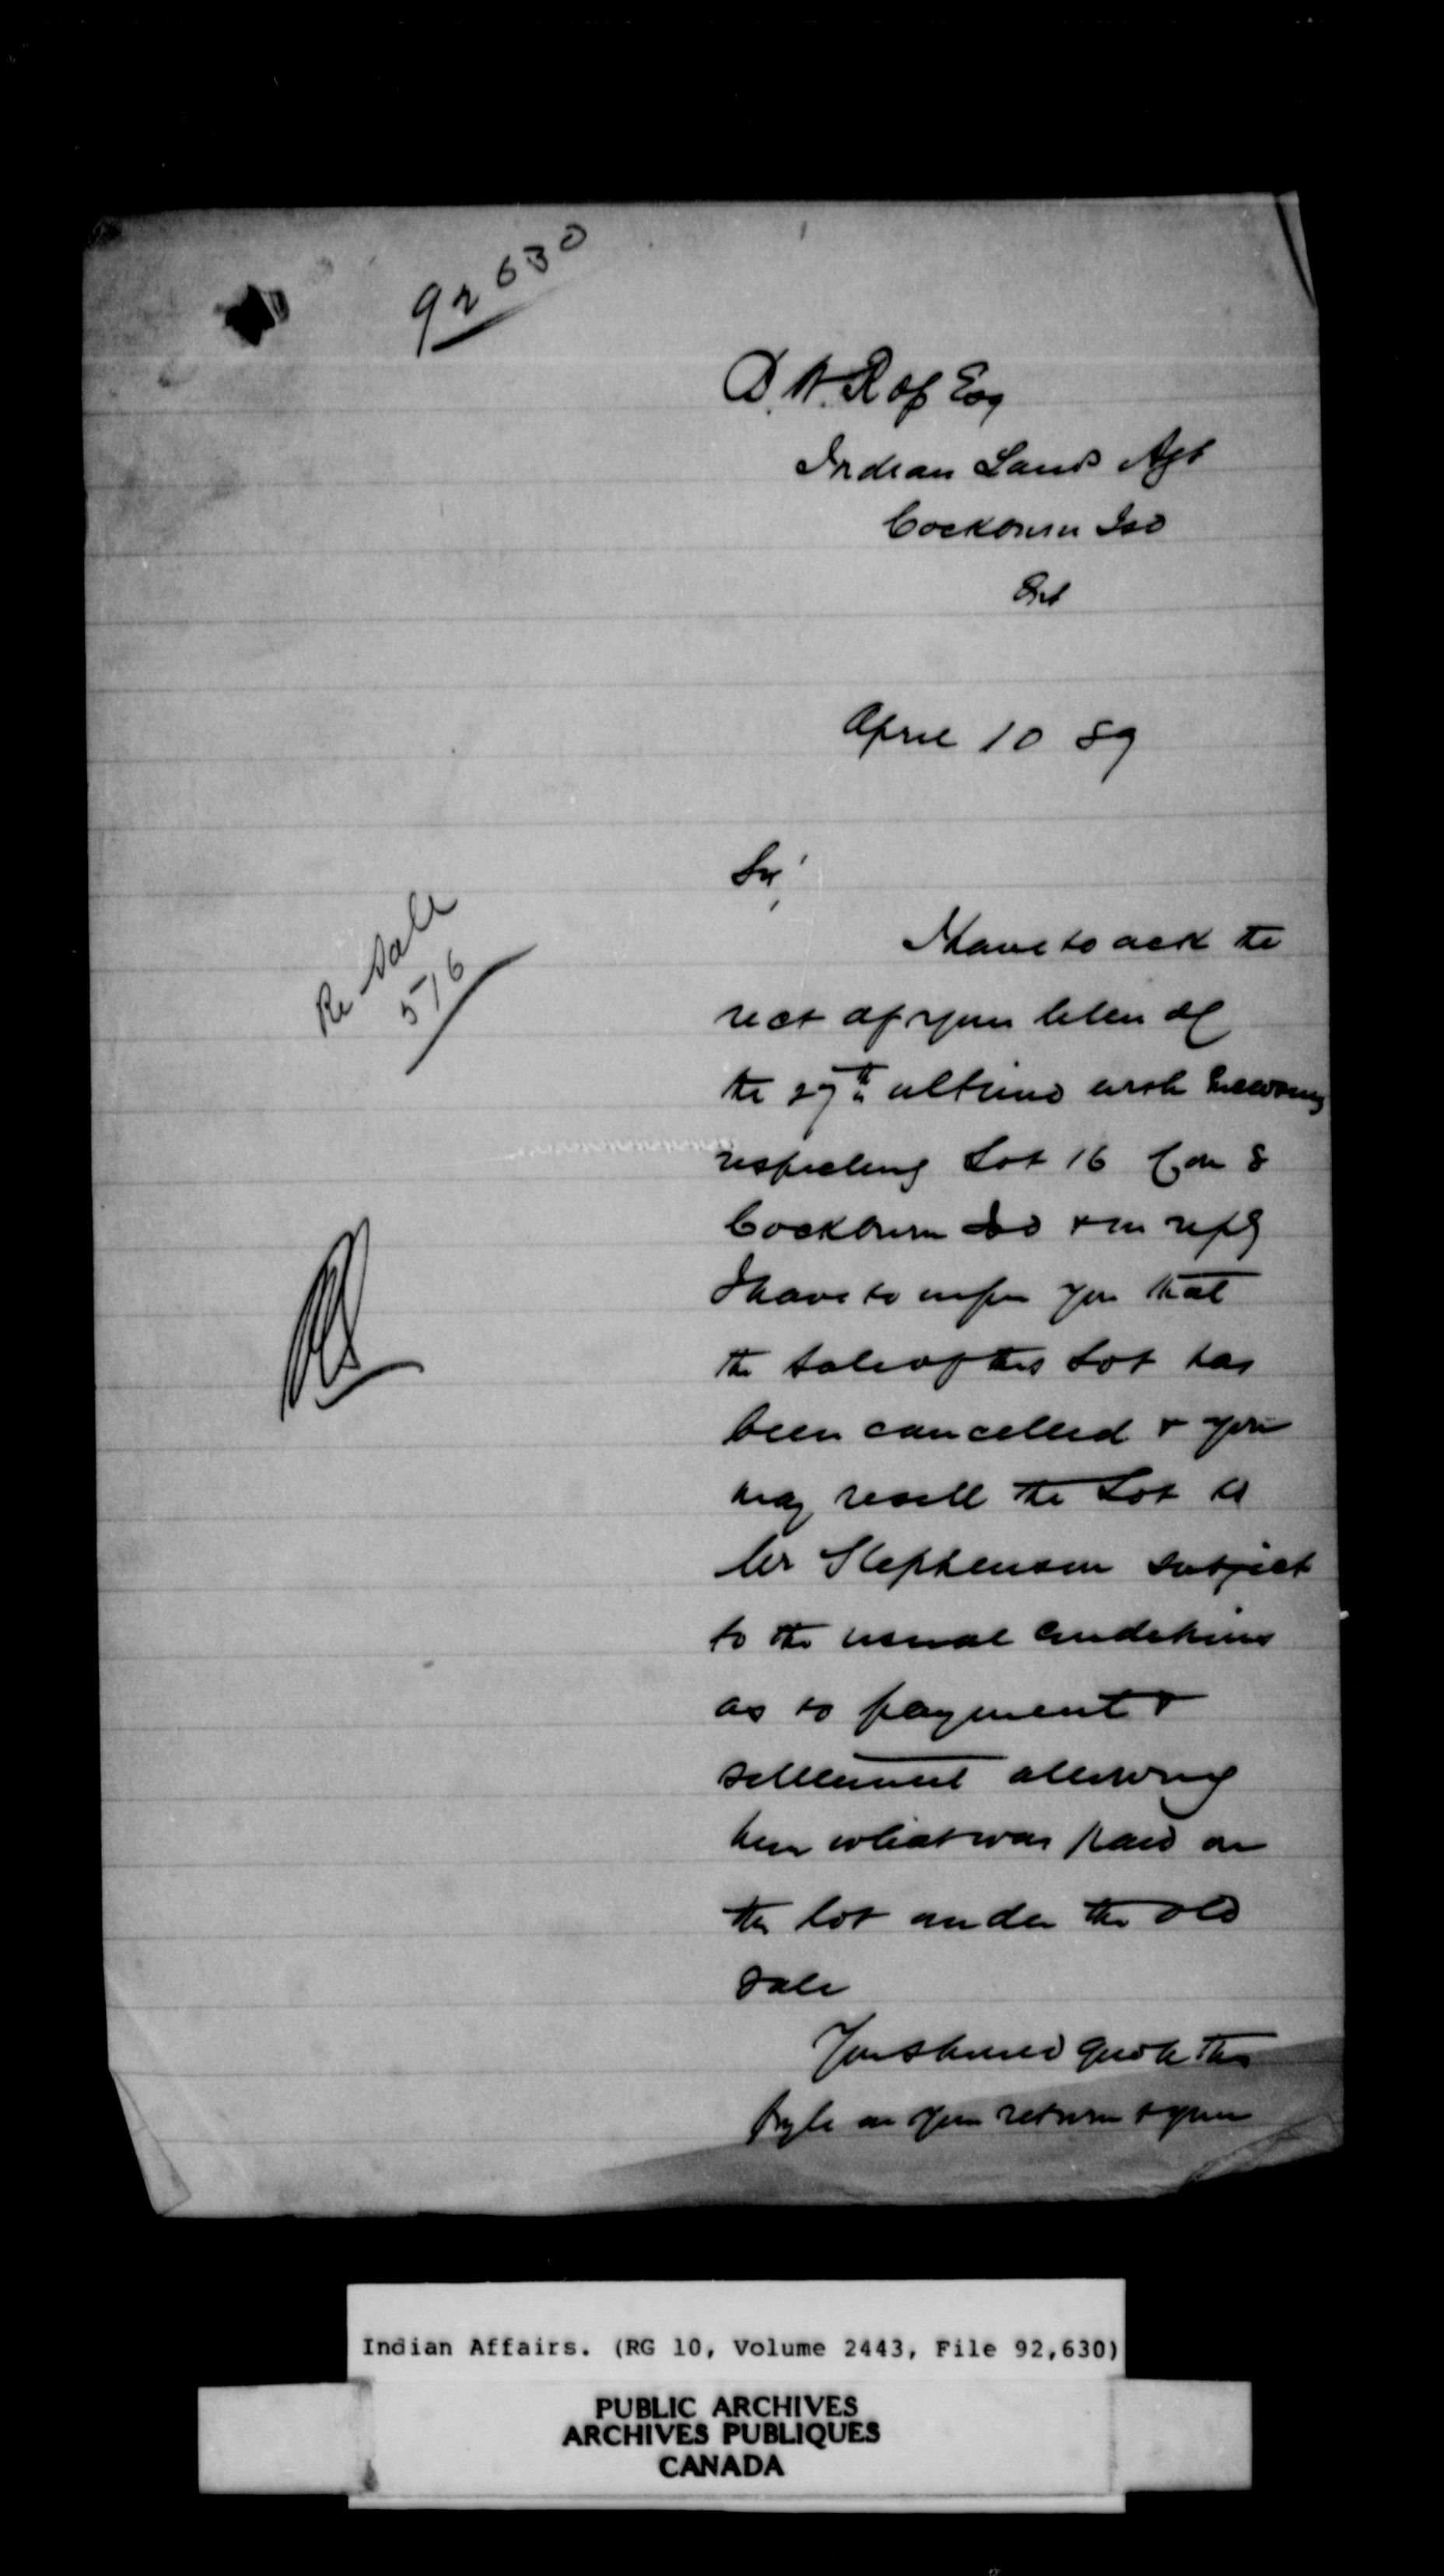 92630
Esq
Indian Lands Agt
Cockburn Isd
Ont
April 10 89
Sir,
Re Sale
516
I have to ack the
rect of your letter of
the 27th ultimo with
respecting Lot 16 Con 8
Cockburn Isd & in reply
I have to infm you that
the sale of this Lot has
been cancelled & you
may resell the Lot to
Mr Stephenson subject
to the usual conditions
as to payment &
settlement allowing
him what was paid on
the lot under the old
sale
You should quote this
on your return & your
Indian Affairs. (RG 10, Volume 2443, File 92,630)
PUBLIC ARCHIVES
ARCHIVES PUBLIQUES
CANADA